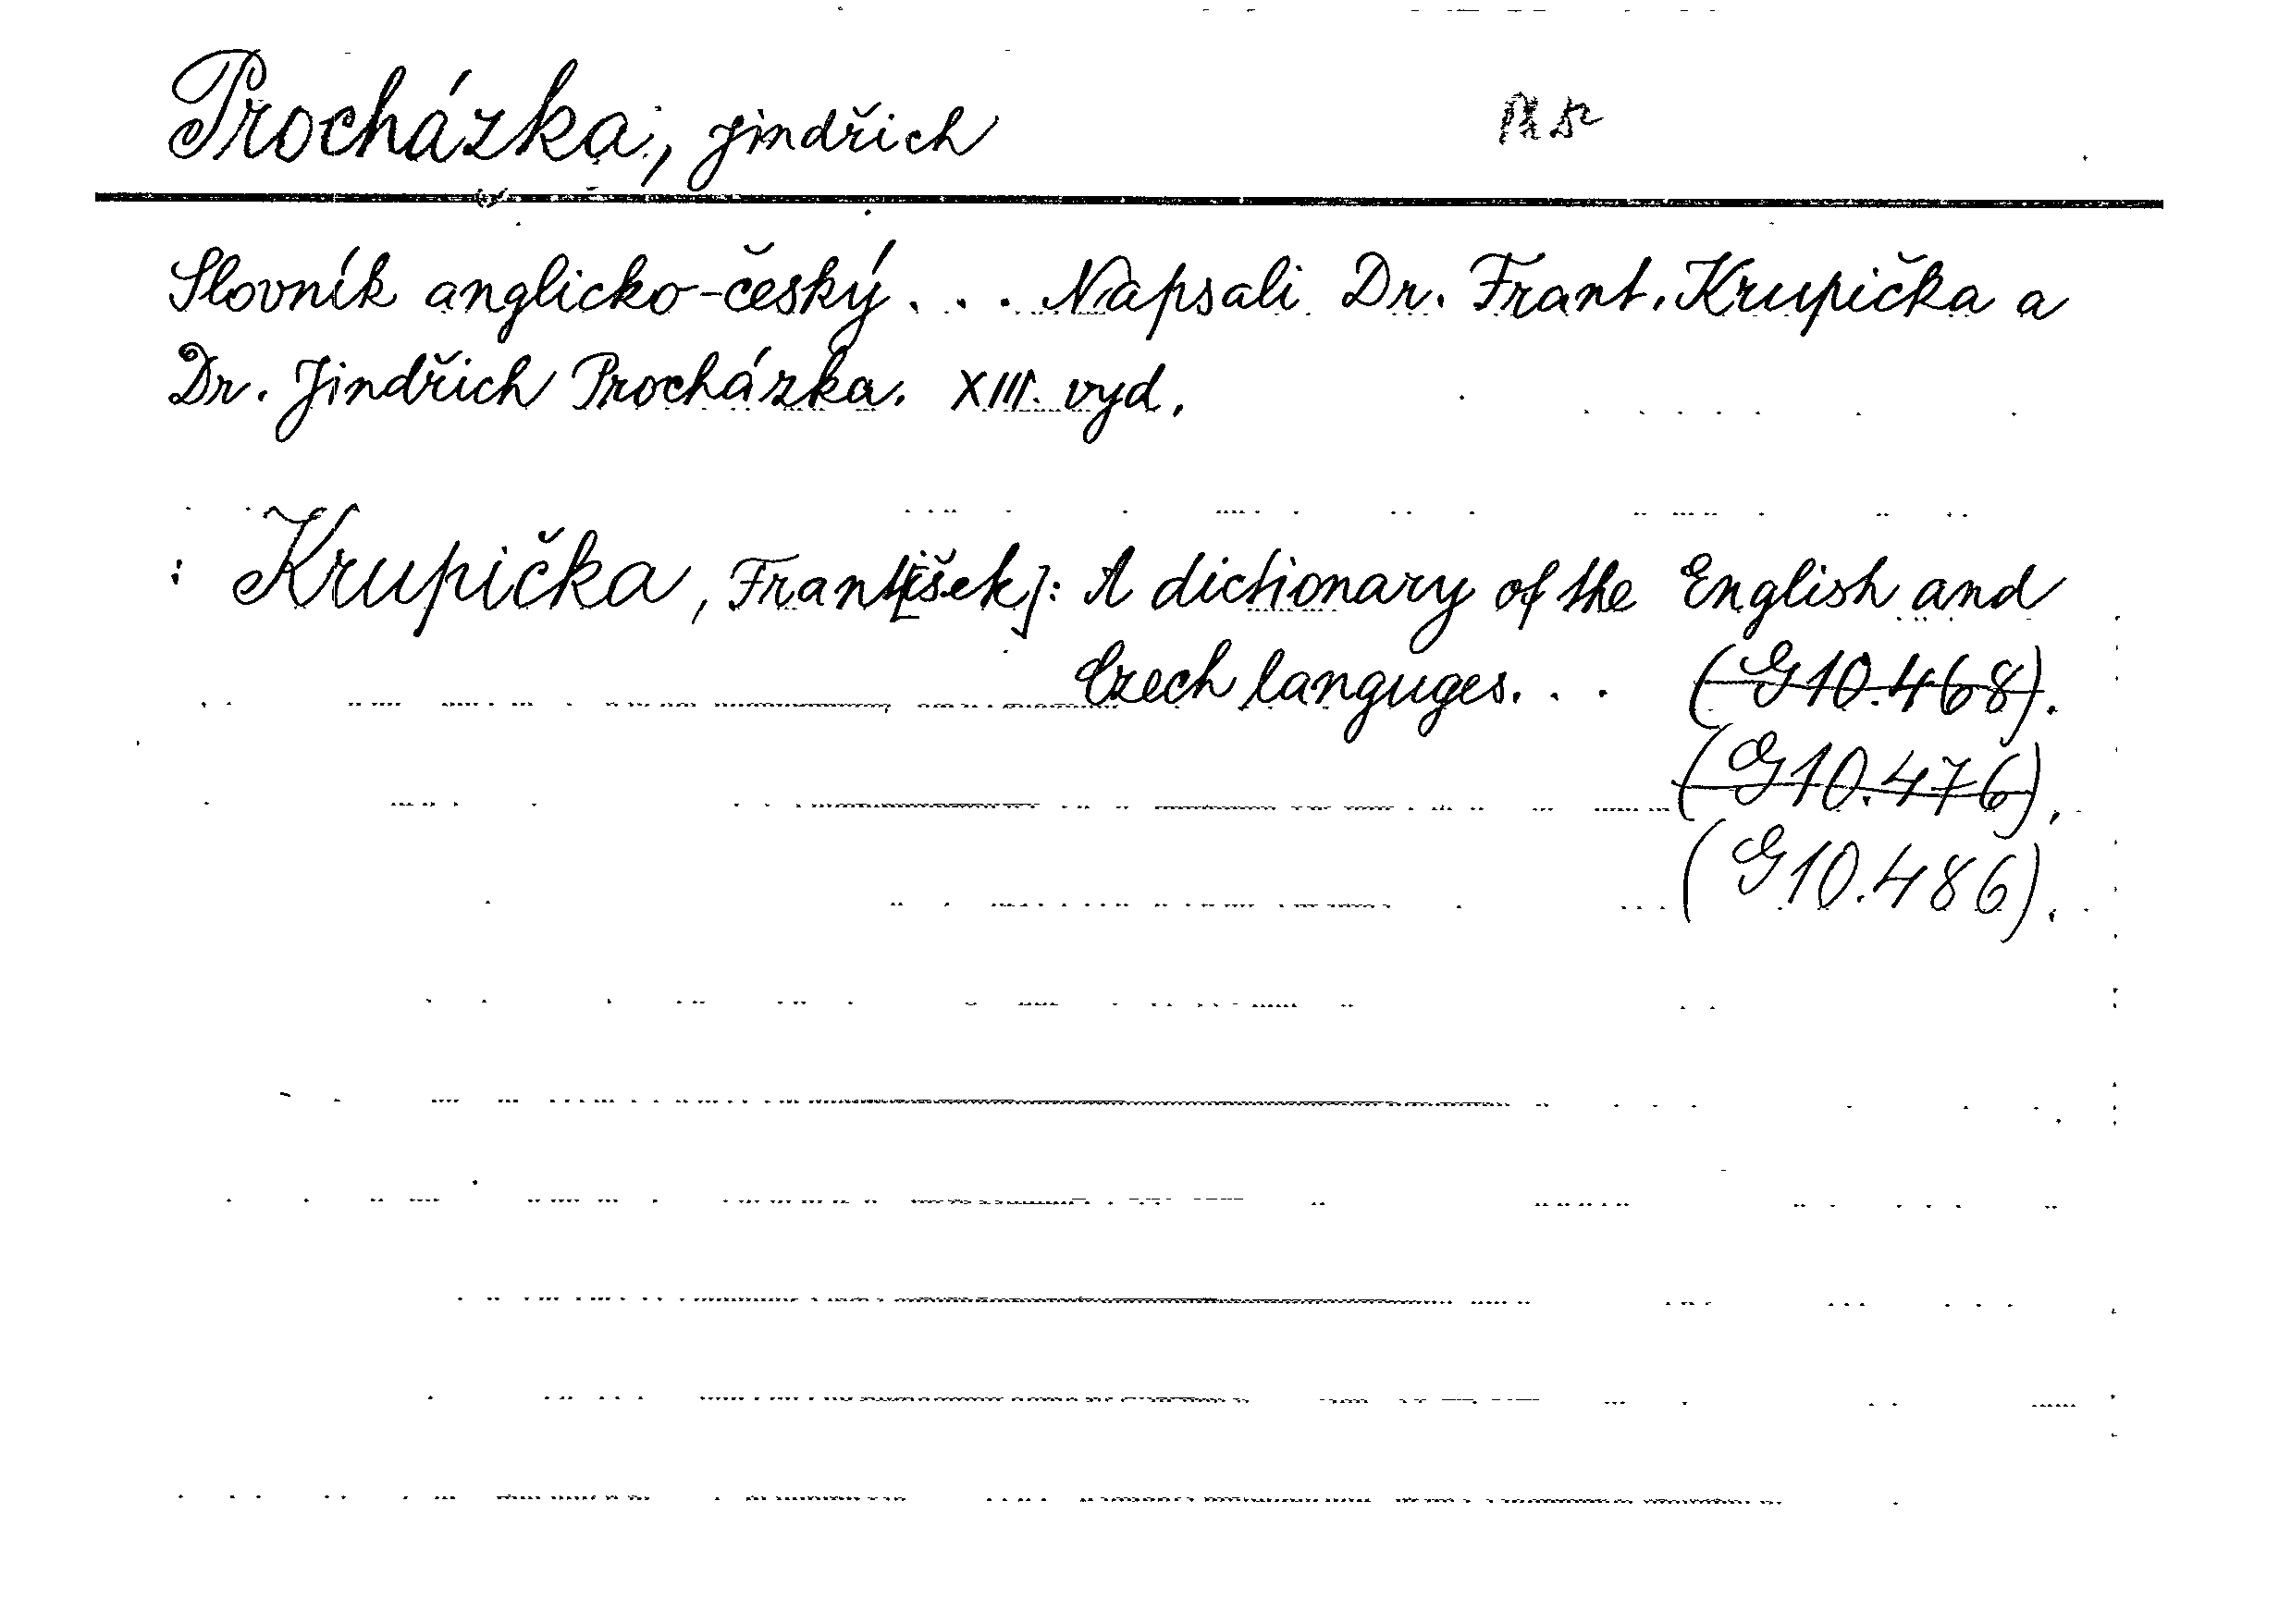 Procházka, Jindřich
Slovník anglicko-český... Napsali Dr. Frant. Krupička a
Dr. Jindřich Procházka. XIII. vyd.
: Krupička, Frant[išek]: A dictionary of the English and
Czech languges... (G10.468).
(G10.476).
(G10.486).